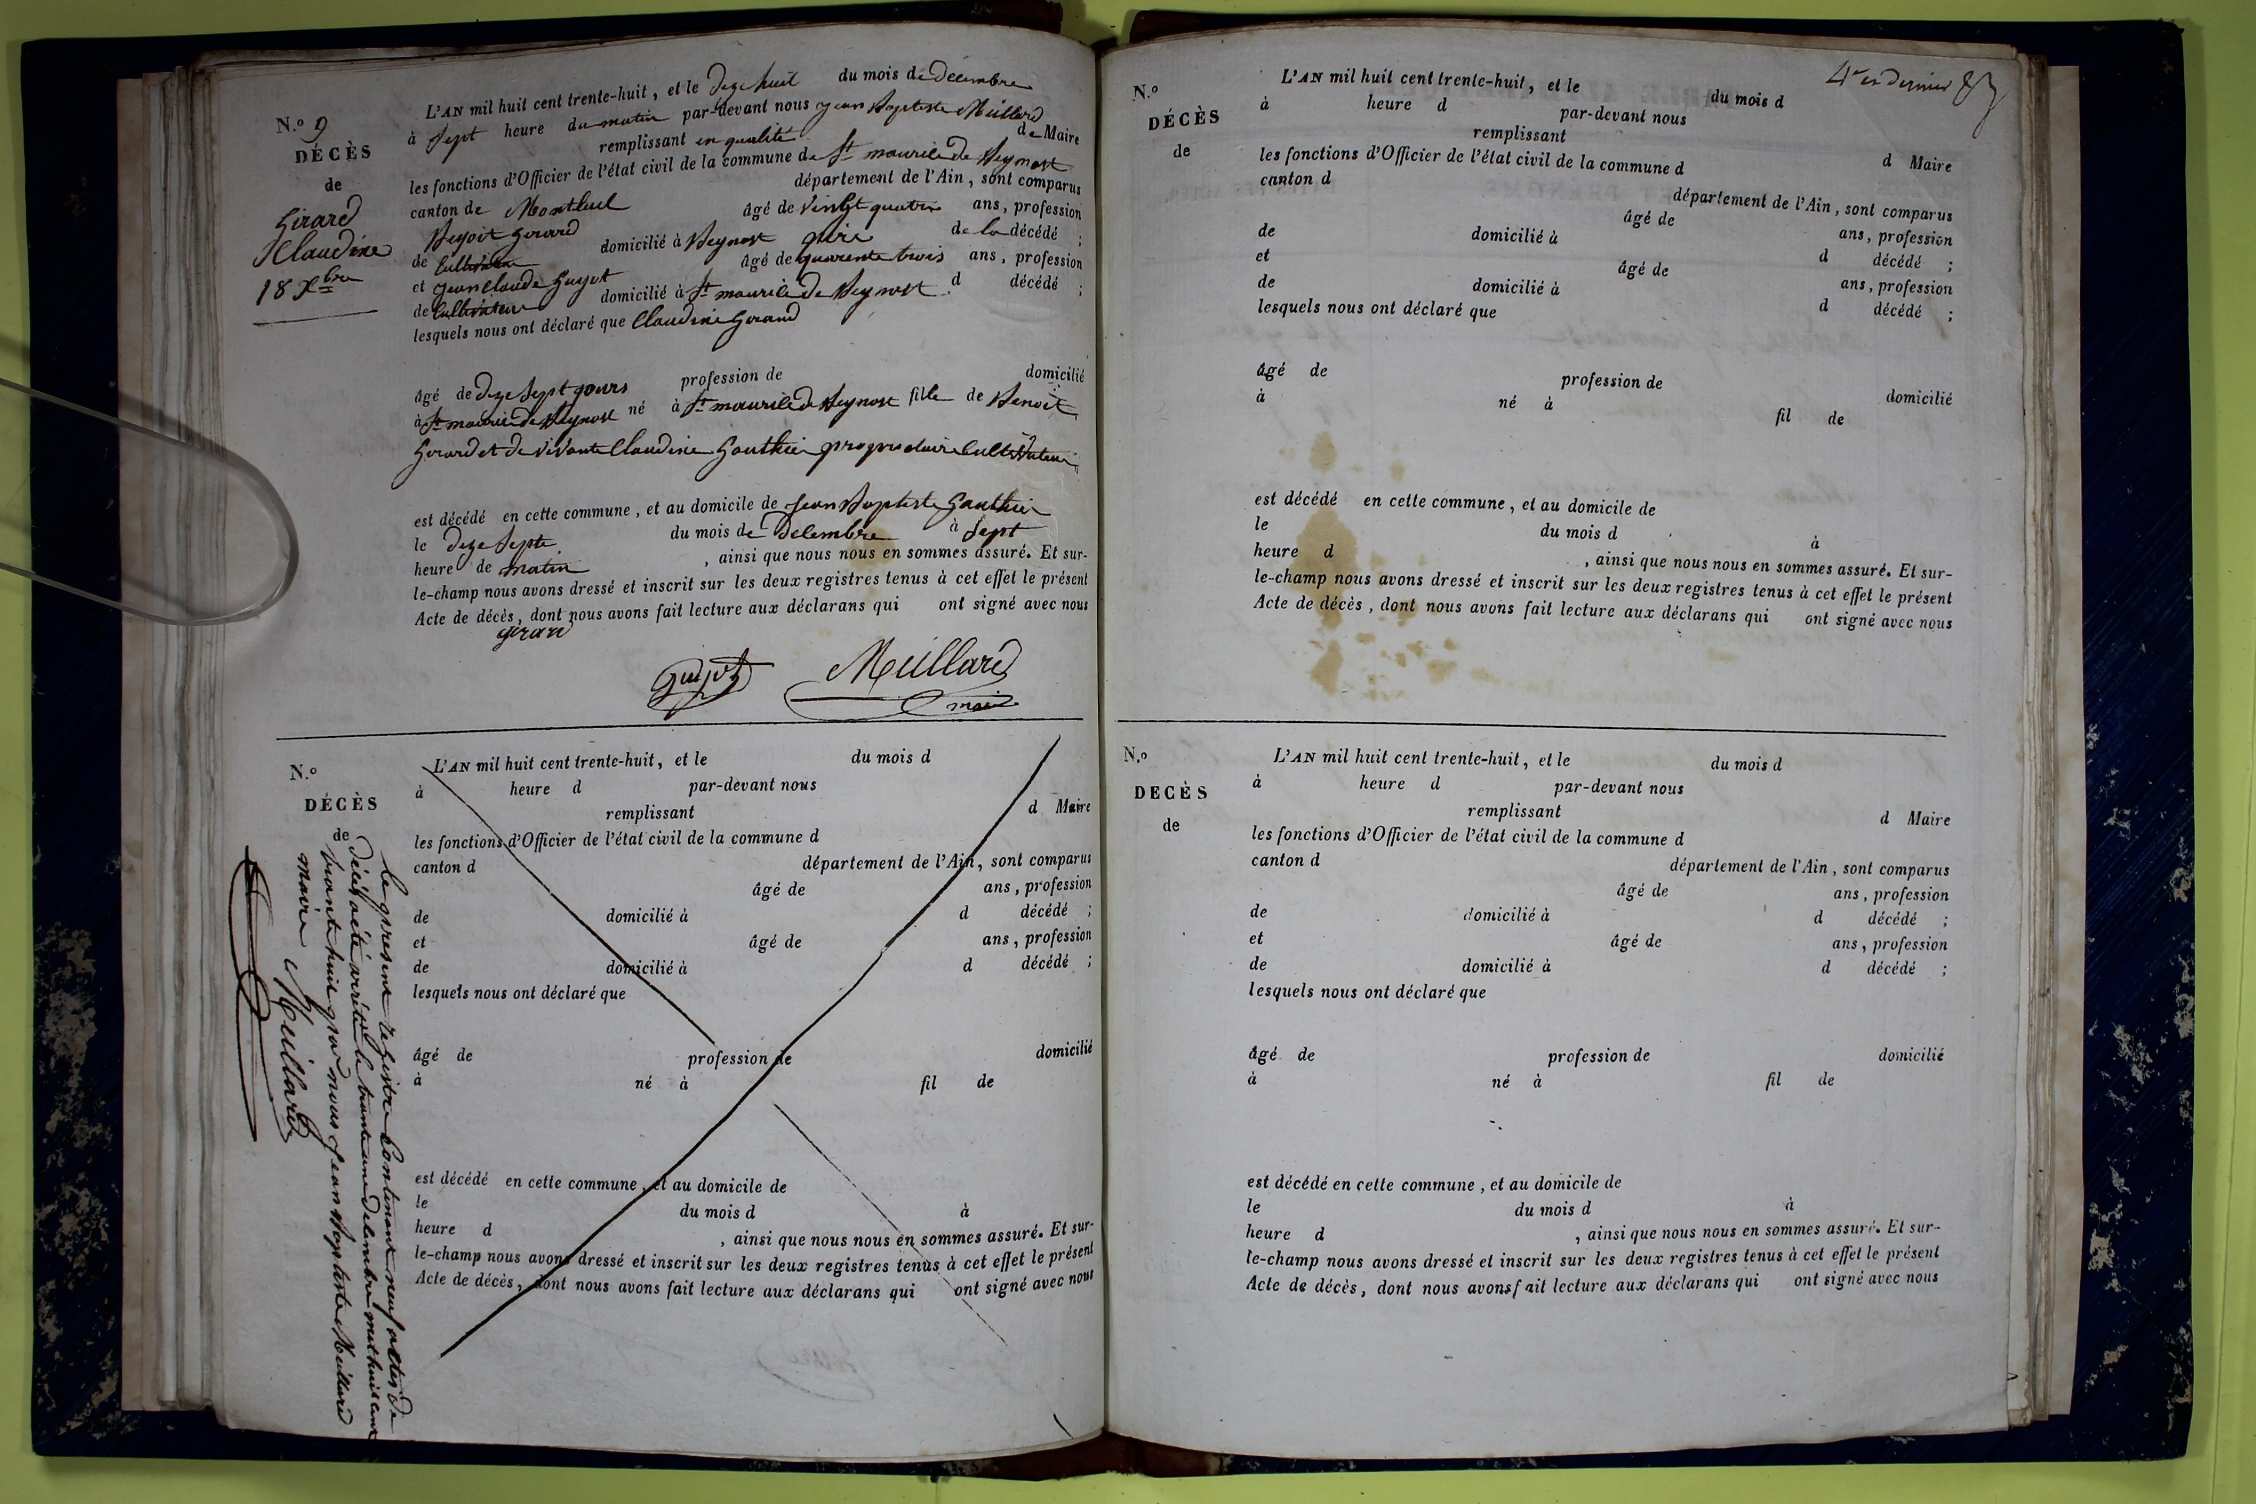 N.º 9
DÉCÈS
de
Girard
Claudine
18 Xbre
L'AN mil huit cent trente-huit, et le dize huit du mois de Décembre
à Sept heure du matin par-devant nous jean Baptiste Meillard
remplissant en qualité de Maire
les fonctions d'Officier de l'état civil de la commune de St maurice de Beynost
canton de Montluel département de l'Ain, sont comparus
Benoit Girard âgé de vingt quatre ans, profession
de Cultivateur domicilié à Beynost père de la décédé ;
et jean Claude Guyot âgé de quarente trois ans, profession
de Cultivateur domicilié à St maurice de Beynost d décédé ;
lesquels nous ont déclaré que Claudine Girard
âgé de dize Sept jours profession de domicilié
à St maurice de Beynost né à St maurice de Beynost fille de Benoit
Girard et de vivante Claudine Gauthier propriétaire Cultivateur
est décédé en cette commune, et au domicile de jean Baptiste Gauthier
le dize Septe du mois de Décembre à Sept
heure de matin, ainsi que nous nous en sommes assuré. Et sur-
le-champ nous avons dressé et inscrit sur les deux registres tenus à cet effet le présent
Acte de décès, dont nous avons fait lecture aux déclarans qui ont signé avec nous
girard
Guyot Meillard
maire
N.º
DÉCÈS
de
L'AN mil huit cent trente-huit, et le du mois d
à heure d par-devant nous
remplissant d Maire
les fonctions d'Officier de l'état civil de la commune d
canton d département de l'Ain, sont comparus
âgé de ans, profession
de domicilié à d décédé ;
et âgé de ans, profession
de domicilié à d décédé ;
lesquels nous ont déclaré que
âgé de profession de domicilié
à né à fil de
est décédé en cette commune, et au domicile de
le du mois d à
heure d , ainsi que nous nous en sommes assuré. Et sur-
le-champ nous avons dressé et inscrit sur les deux registres tenus à cet effet le présent
Acte de décès, dont nous avons fait lecture aux déclarans qui ont signé avec nous
le present registre Contenant neuf actes de
décès a été arrêté le trente une décembre mil huit cent
trante huit par nous jean Baptiste Meillard
maire Meillard
4e et dernier
N.º
DÉCÈS
de
L'AN mil huit cent trente-huit, et le du mois d
à heure d par-devant nous
remplissant d Maire
les fonctions d'Officier de l'état civil de la commune d
canton d département de l'Ain, sont comparus
âgé de ans, profession
de domicilié à d décédé ;
et âgé de ans, profession
de domicilié à d décédé ;
lesquels nous ont déclaré que
âgé de profession de domicilié
à né à fil de
est décédé en cette commune, et au domicile de
le du mois d à
heure d , ainsi que nous nous en sommes assuré. Et sur-
le-champ nous avons dressé et inscrit sur les deux registres tenus à cet effet le présent
Acte de décès, dont nous avons fait lecture aux déclarans qui ont signé avec nous
N.º
DECÈS
de
L'AN mil huit cent trente-huit, et le du mois d
à heure d par-devant nous
remplissant d Maire
les fonctions d'Officier de l'état civil de la commune d
canton d département de l'Ain, sont comparus
âgé de ans, profession
de domicilié à d décédé ;
et âgé de ans, profession
de domicilié à d décédé ;
lesquels nous ont déclaré que
âgé de profession de domicilié
à né à fil de
est décédé en cette commune, et au domicile de
le du mois d à
heure d , ainsi que nous nous en sommes assuré. Et sur-
le-champ nous avons dressé et inscrit sur les deux registres tenus à cet effet le présent
Acte de décès, dont nous avons fait lecture aux déclarans qui ont signé avec nous